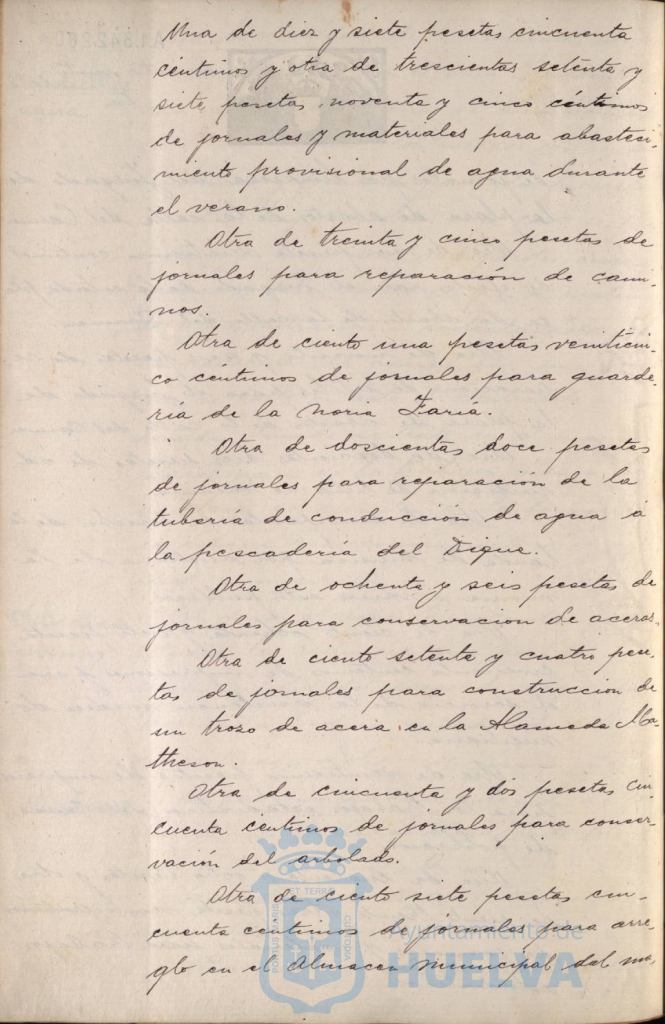 Una de diez y siete pesetas cincuenta
céntimos y otra de trescientas setenta y
siete pesetas noventa y cinco céntimos
de jornales y materiales para abasteci-
miento provisional de agua durante
el verano.
Otra de treinta y cinco pesetas de
jornales para reparación de cami-
nos.
Otra de ciento una pesetas veinticin-
co céntimos de jornales para guarde-
ría de la noria Faria.
Otra de doscientas doce pesetas
de jornales para reparación de la
tubería de conducción de agua á
la pescadería del Dique.
Otra de ochenta y seis pesetas de
jornales para conservacion de aceras.
Otra de ciento setenta y cuatro pese-
tas de jornales para construccion de
un trozo de acera en la Alameda Ma-
theson.
Otra de cincuenta y dos pesetas cin-
cuenta céntimos de jornales para conser-
vación del arbolado.
Otra de ciento siete pesetas cin-
cuenta centimos de jornales para arre-
glo en el Almacen municipal del ma-
PORTUS MARIS ET TERRAE CUSTODIA
Ayuntamiento de
HUELVA